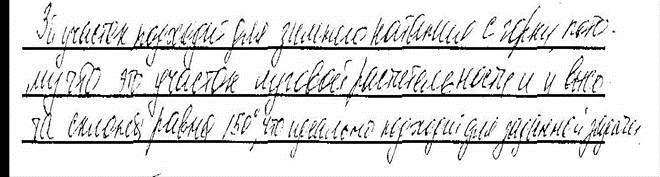 3й участок подходит для зимнего катания с горки, пото-
му что это участок луговой растительности и высо-
та склона равна 150°, что идеально подходит для заданной задачи